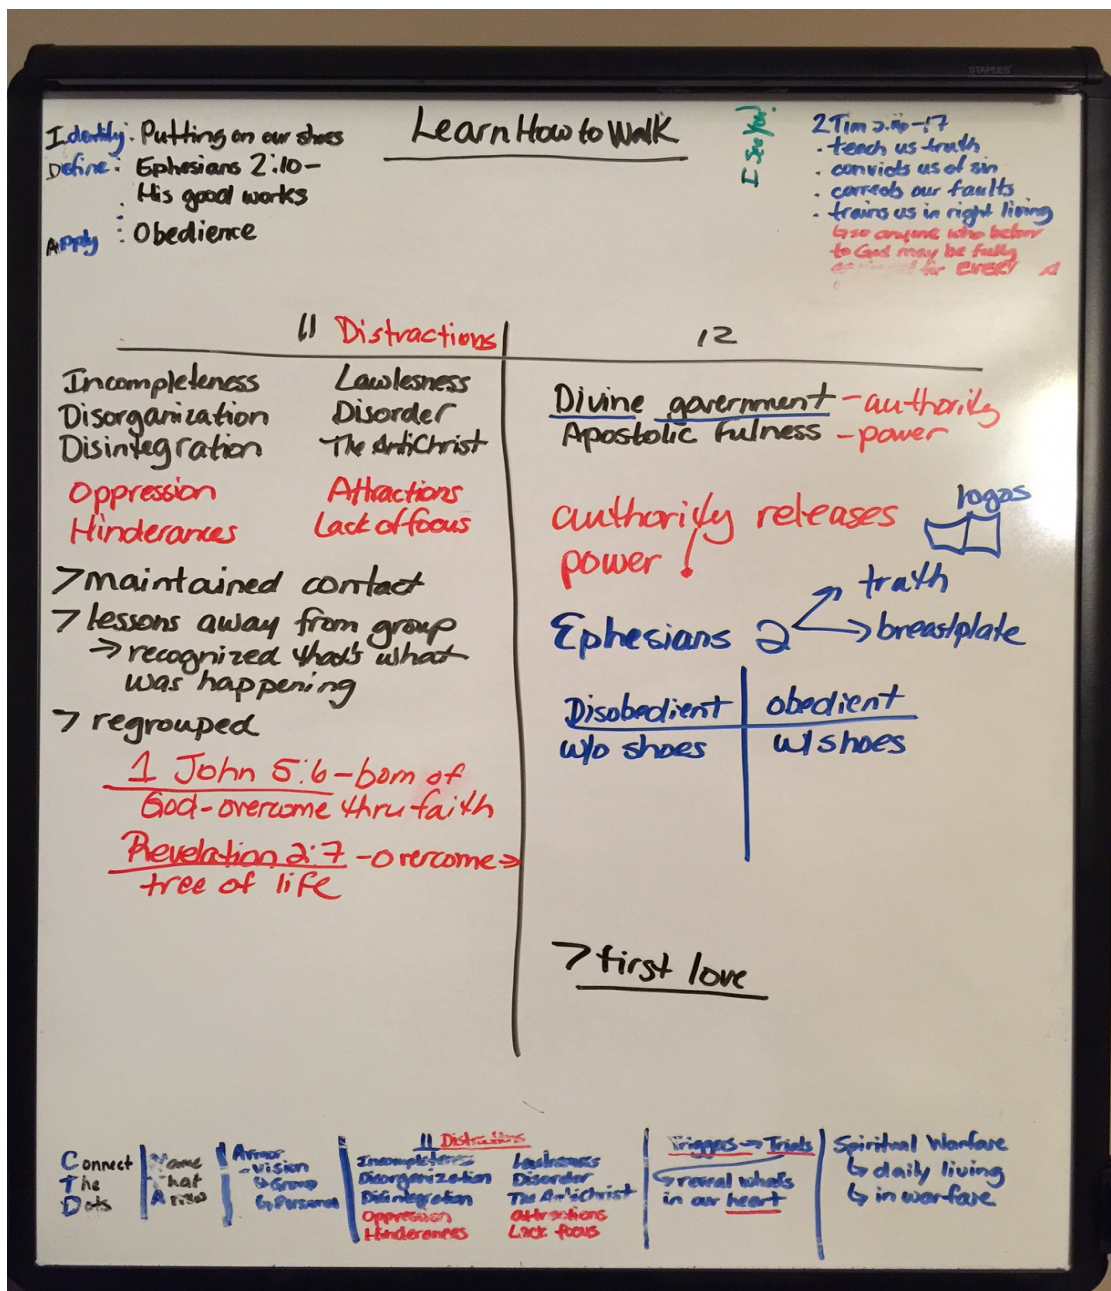 STAPLES
Learn How to Walk
Identify: Putting on our shoes
Define: Ephesians 2:10-
His good works
Apply : Obedience
I See You!
2 Tim -17
• teach us truth
• convicts us of sin
• corrects our faults
• trains us in right living
↳ so anyone who
to God may be fully
for EVERY
11 Distractions
Incompleteness Lawlesness
Disorganization Disorder
Disintegration The AntiChrist
Oppression Attractions
Hinderances Lack of focus
> maintained contact
> lessons away from group
→ recognized that's what
was happening
> regrouped
1 John 5:6 - born of
God - overcome thru faith
Revelation 2:7 - overcome →
tree of life
12
Divine government - authority
Apostolic Fulness - power
authority releases
power
logos
Ephesians 2 → truth
→ breastplate
Disobedient obedient
w/o shoes w/ shoes
> first love
Connect
The
Dots
Name
That
Armor
- Vision
↳ Group
↳ Personal
11 Distractions
Incompleteness Lawlesness
Disorganization Disorder
Disintegration The AntiChrist
Oppression Attractions
Hinderances Lack focus
Triggers → Trials
↳ reveal what's
in our heart
Spiritual Warfare
↳ daily living
↳ in warfare